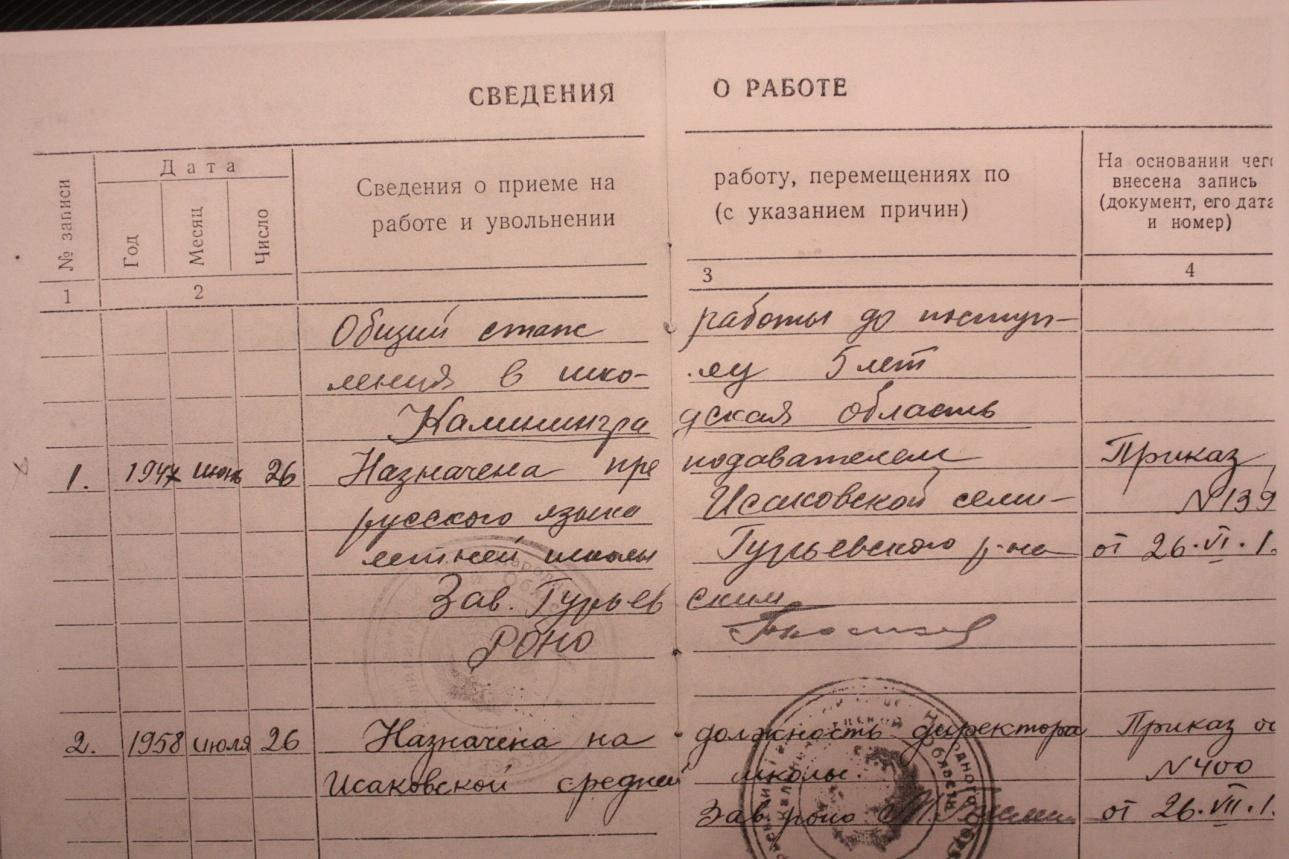 СВЕДЕНИЯ О РАБОТЕ
№ записи
Дата
Год
Месяц
Число
Сведения о приеме на работу, перемещениях по
работе и увольнении (с указанием причин)
На основании чего
внесена запись
(документ, его дата
и номер)
1 2 3 4
Общий стаж работы до поступ-
ления в шко- лу 5 лет
Калинингра дская область
1. 1947 июнь 26 Назначена пре подавателем Приказ
русского языка Исаковской семи- №139
летней школы Гурьевского р-на от 26.VI.1.
Зав. Гурьев ским
РОНО
2. 1958 июля 26 Назначена на должность директора Приказ
Исаковской средней школы. №400
Зав. роно от 26.VII.1.